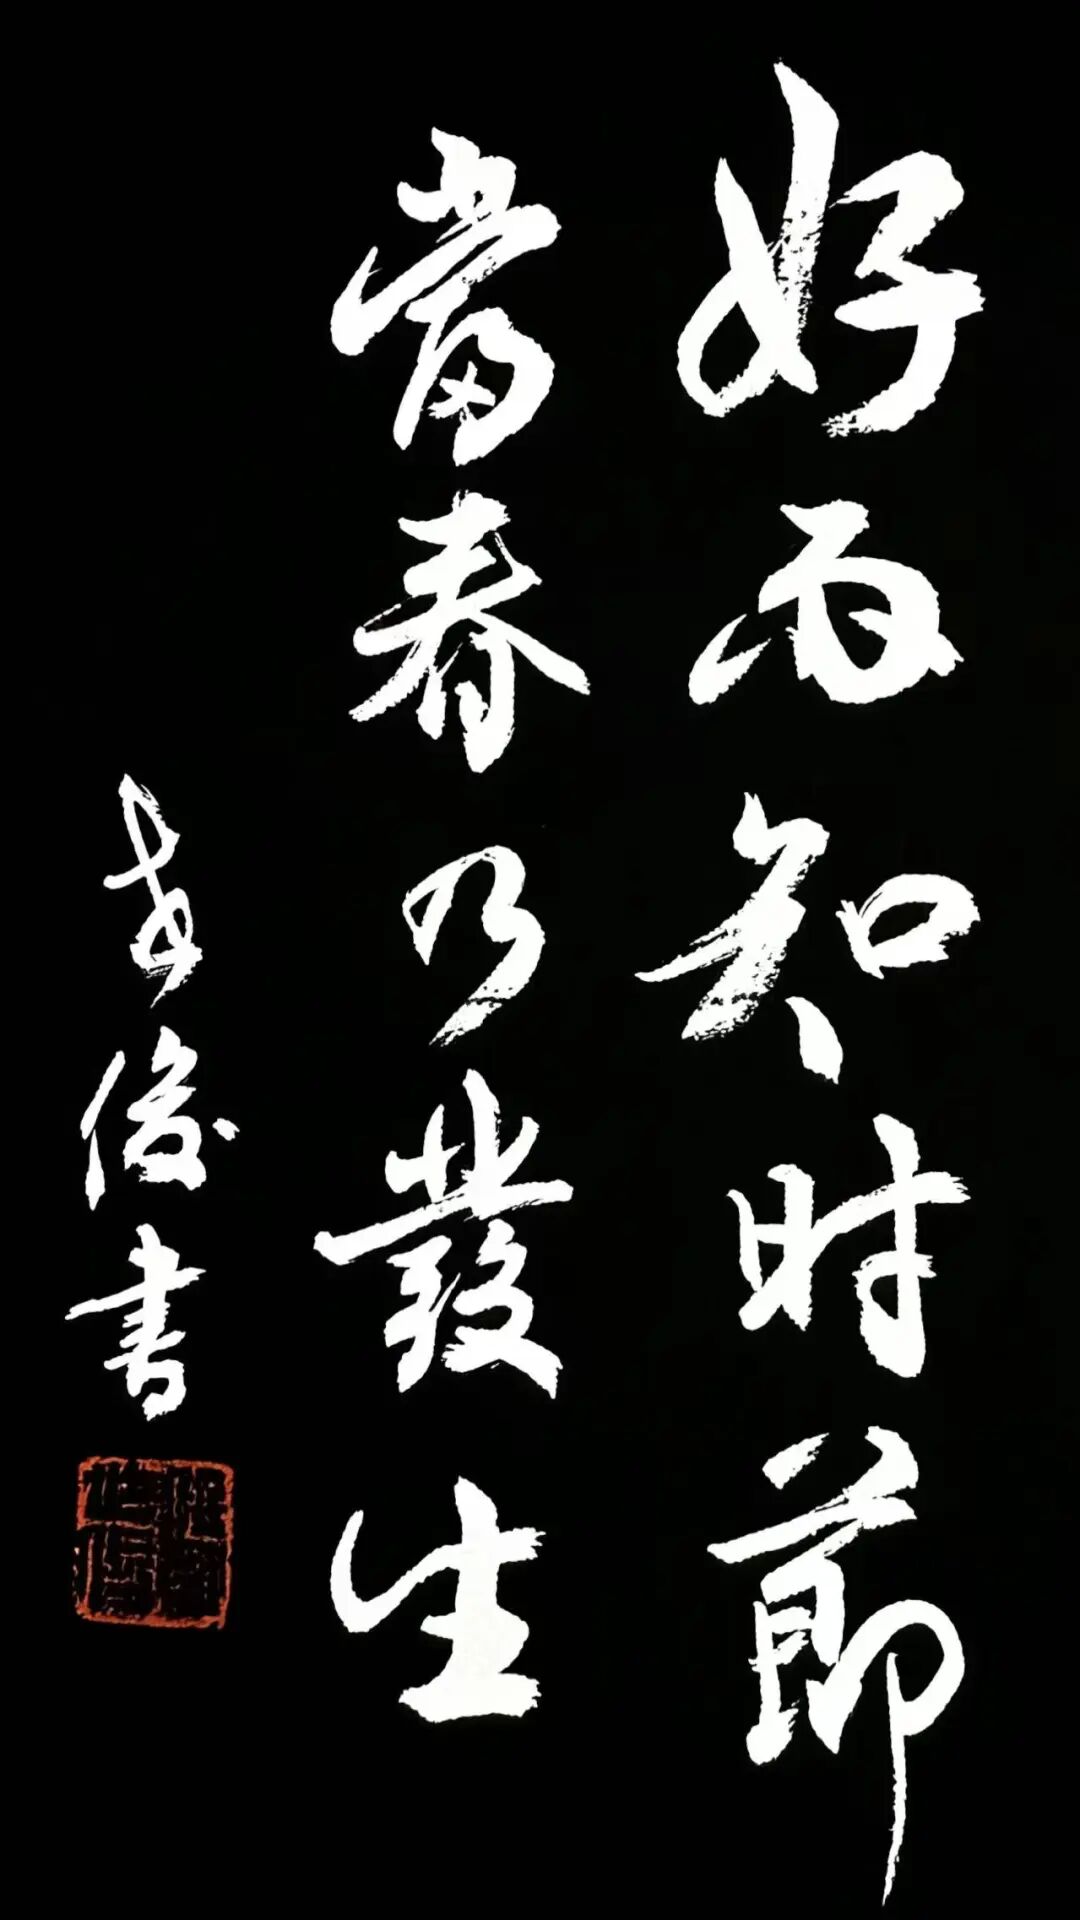 好雨知时節
當春乃發生
俊書